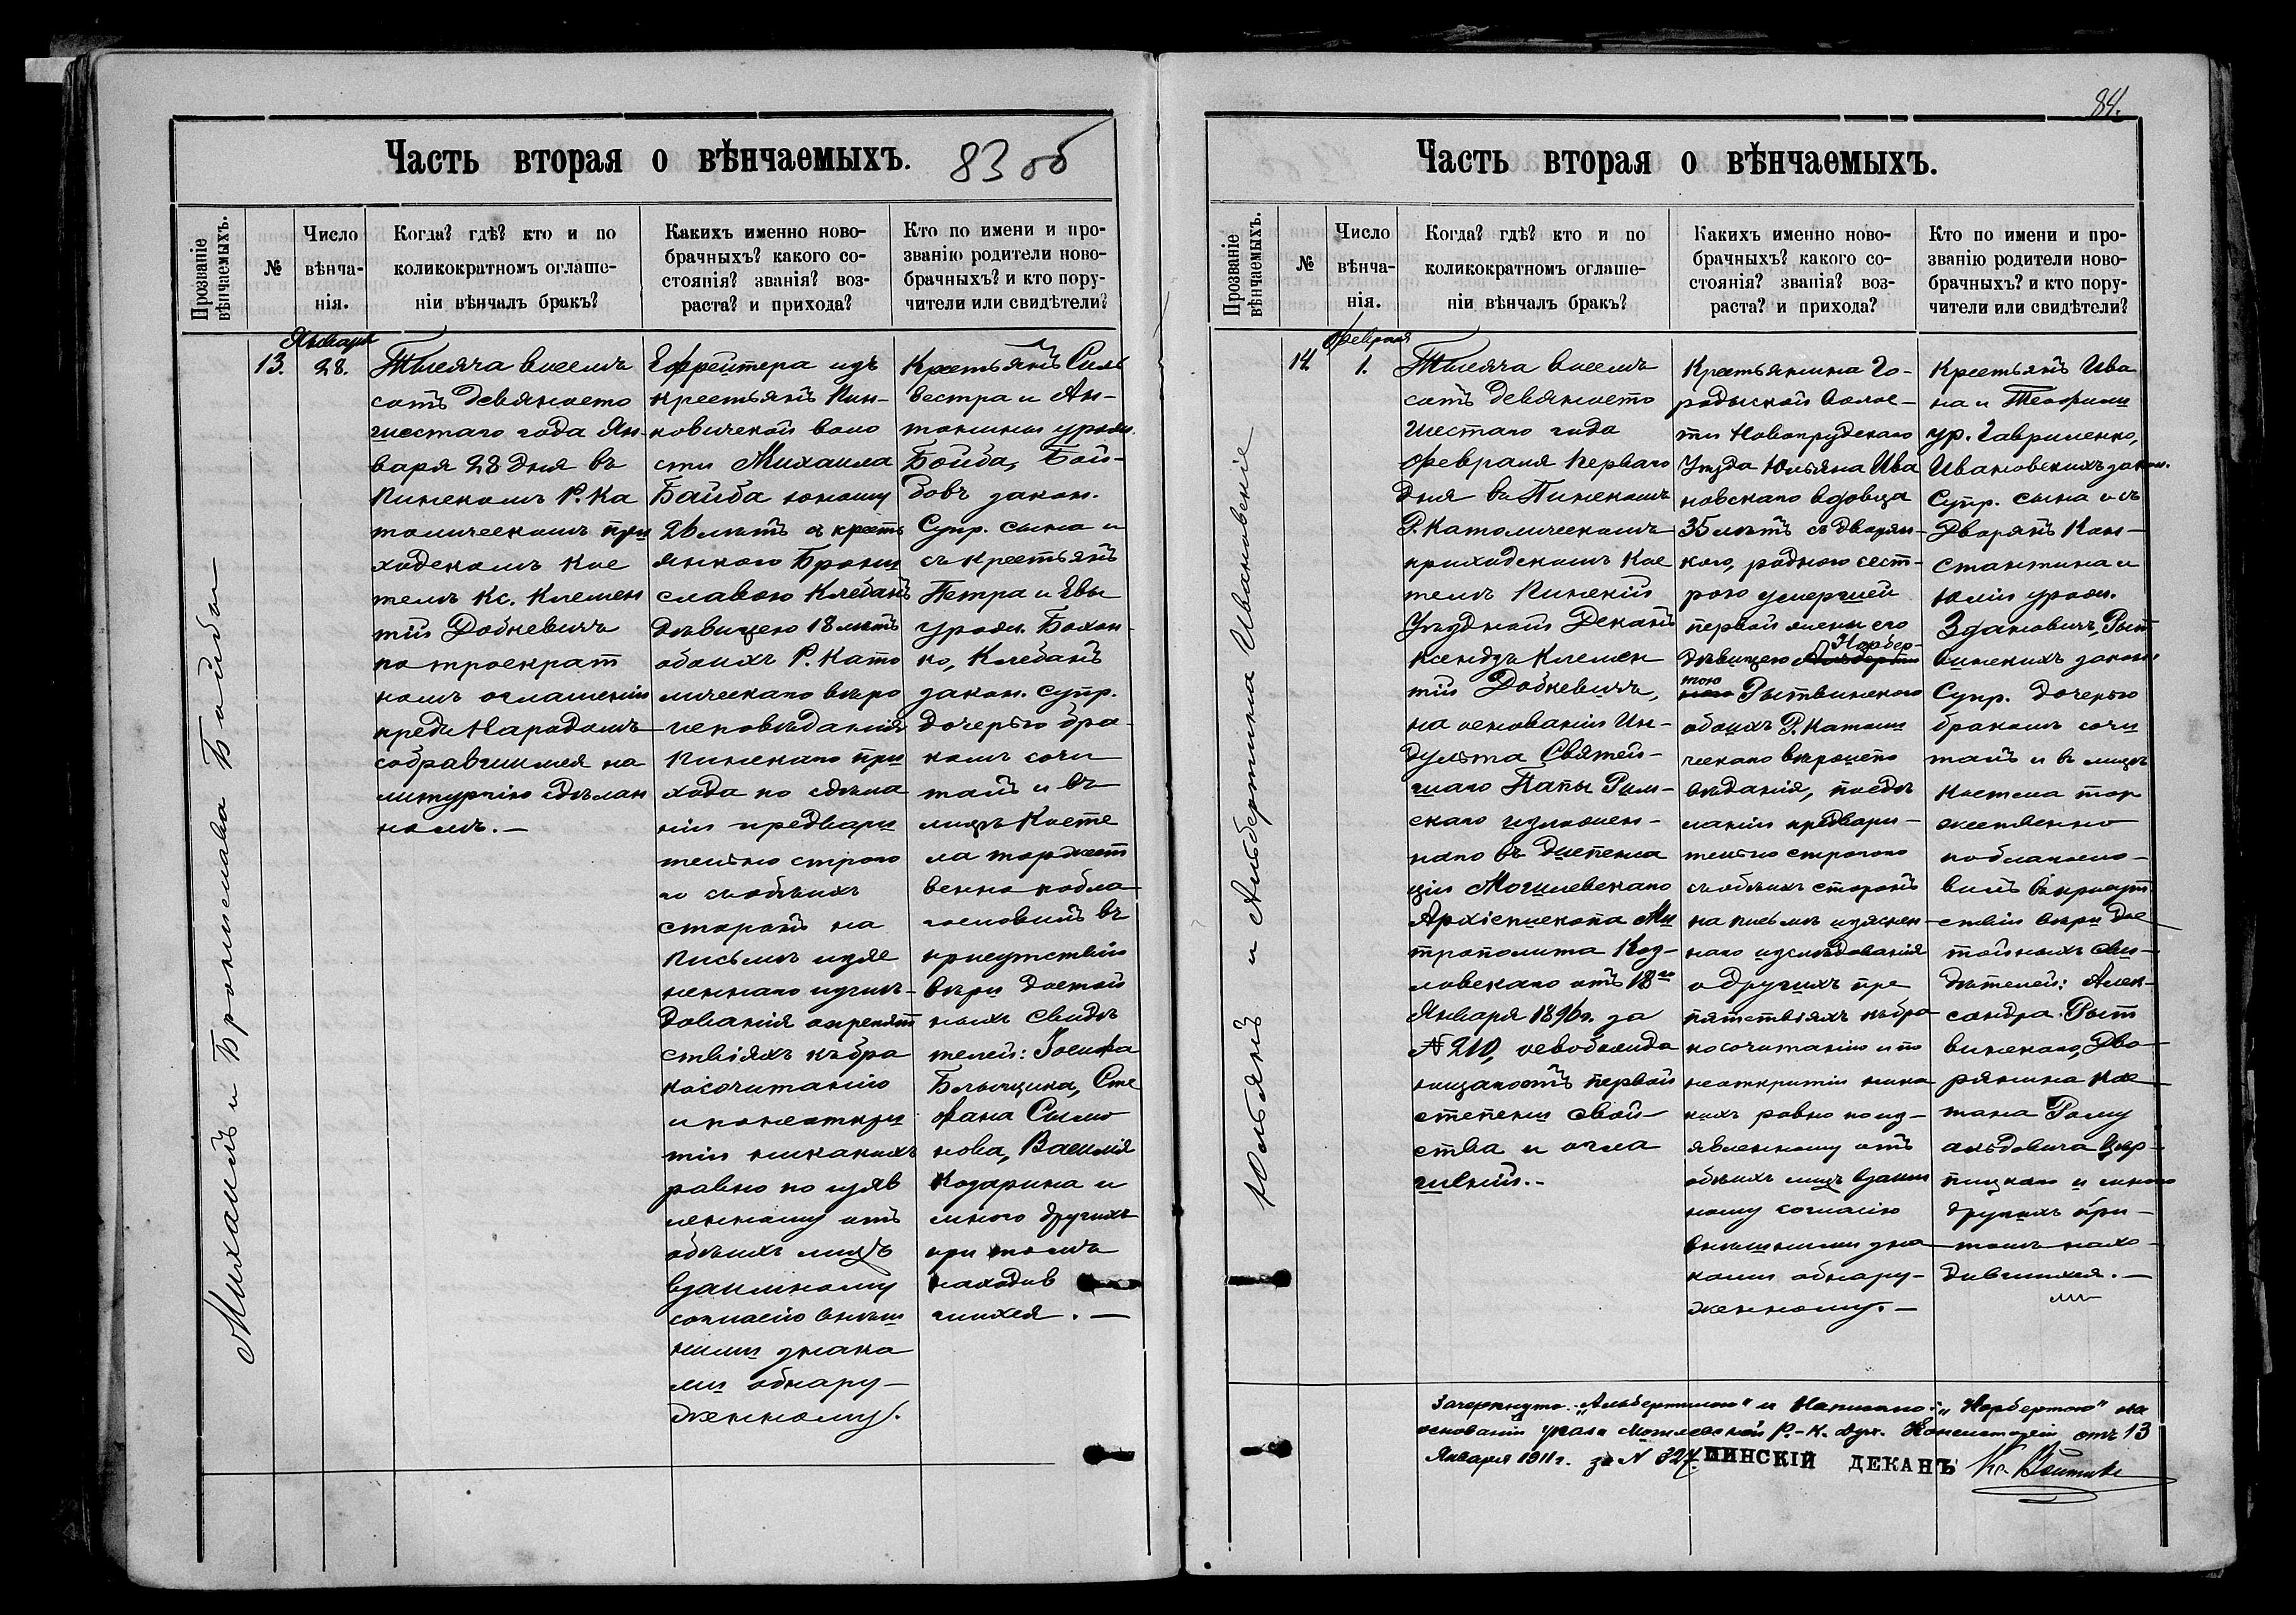 Часть вторая о вѣнчаемыхъ.
83 об
Прозваніе вѣнчаемыхъ.
№
Число вѣнча-
нія.
Когда? гдѣ? кто и по
коликократномъ оглаше-
ніи вѣнчалъ бракъ?
Какихъ именно ново-
брачныхъ? какого со-
стоянія? званія? воз-
раста? и прихода?
Кто по имени и про-
званію родители ново-
брачныхъ? и кто пору-
чители или свидѣтели?
Михаилъ и Брониславa Бойбы
13.
Января
28.
Тысяча восемь
сотъ девяносто
шестаго года Ян-
варя 28 дня въ
Пинскомъ Р. Ка
толическомъ при
ходскомъ кос
телѣ Кс. Клемен
тій Добкевичъ
по троекрат
номъ оглашеніи
предъ народомъ
собравшимся на
литургію сдѣлан
номъ.—
Ефрейтера изъ
крестьянъ Пин-
ковичской воло
сти Михаила
Байба юношу
26 лѣтъ съ кресть
янкою Брони
славою Клебанъ
дѣвицею 18 лѣтъ
обоихъ Р. Като
лическаго вѣро
исповѣданія
Пинскаго при
хода по сдѣла
ніи предвари
тельно строго
го съ обѣихъ
сторонъ на
письмѣ изяс
неннаго изслѣ-
дованія о препят
ствіяхъ къ бра
косочитанію
и по неоткры
тіи никакихъ
равно по изяв
ленному отъ
обѣихъ лицъ
взаимному
согласію внѣш
ними знака
ми обнару-
женному.
Крестьянъ Силь
вестра и Ан-
тонины урожд.
Бойба, Бой-
бовъ закон.
Супр. сына и
съ крестьянъ
Петра и Евы
урожд. Бохон-
ко, Клебанъ
закон. супр.
дочерью бра-
комъ сочи
талъ и въ
лицѣ косте
ла торжест
венно побла-
гословилъ въ
присутствіи
вѣры достой
ныхъ свидѣ
телей: Іосифа
Блыщика, Сте
фана Сымо
нова, Василія
Козарина и
много другихъ
при томъ
находив
шихся.—
84.
Часть вторая о вѣнчаемыхъ.
Прозваніе вѣнчаемыхъ.
№
Число вѣнча-
нія.
Когда? гдѣ? кто и по
коликократномъ оглаше-
ніи вѣнчалъ бракъ?
Какихъ именно ново-
брачныхъ? какого со-
стоянія? званія? воз-
раста? и прихода?
Кто по имени и про-
званію родители ново-
брачныхъ? и кто пору-
чители или свидѣтели?
Юльянъ и Альбертина Ивановскіе
14.
Февраля
1.
Тысяча восемь
сотъ девяносто
шестаго года
Февраля перваго
дня въ Пинскомъ
Р. Католическомъ
приходскомъ кос
телѣ Пинскій
Уѣздный Деканъ
ксендзъ Клемен
тій Добкевичъ,
на основаніи Ин-
дульта Святѣй-
шаго Папы Рим-
скаго изложен-
наго въ диспенса
ціи Могилевскаго
Архіепископа Ми
трополита Коз-
ловскаго отъ 18го
Января 1896г. за
№ 210, освобожда
ющаго отъ первой
степени свой-
ства и огла
шеній.-
Крестьянина Го-
родыской волос-
ти Новогрудскаго
Уѣзда Юльяна Ива
новскаго вдовца
35 лѣтъ съ дворян-
кою, родною сест-
рою умершей
первой жены его
Норбер-
дѣвицею Альберти
тою
ною Рытвинскою
обоихъ Р. Католи
ческаго вѣроиспо
вѣданія, по сдѣ
ланіи предвари-
тельно строгаго
съ обѣихъ сторонъ
на письмѣ изяснен-
наго изслѣдованія
о другихъ пре
пятствіяхъ къ бра
косочитанію и по
неоткрытіи ника
кихъ равно по из-
явленному отъ
обѣихъ лицъ взаим
ному согласію
внѣшними зна
ками обнару-
женному.—
Крестьянъ Ива
на и Теофили
ур. Гавриленко,
Ивановскихъ закон.
Супр. сына и съ
Дворянъ Кон-
стантина и
Юліи урожд.
Здановичъ, Рыт
винскихъ закон.
Супр. дочерью
бракомъ сочи
талъ и въ лицѣ
костела тор
жественно
поблагосло-
вилъ въ присут
ствіи вѣры дос
тойныхъ сви-
дѣтелей: Алек-
сандра Рыт
винскаго, Дво
рянина Кае
тана Рому
альдовича
и много
другихъ при-
томъ нахо-
дившихся.—
Зачеркнуто „Альбертиною“ и написано: „Норбертою“ на
основаніи указа Могилевской Р.-К. Дух. Консисторіи отъ 13
Января 1911 г. за № 324. ПИНСКІЙ ДЕКАНЪ Кс.